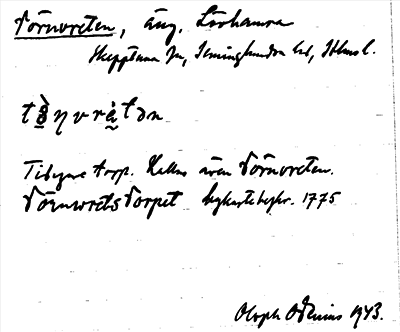 Törnvreten, äng, Lövhamra
Skepptuna sn, Seminghundra hd, Sthms l.
Tidigare torp. Kallas även Törnvreten.
Törnwretstorpet 1775
Oloph Odenius 1943.